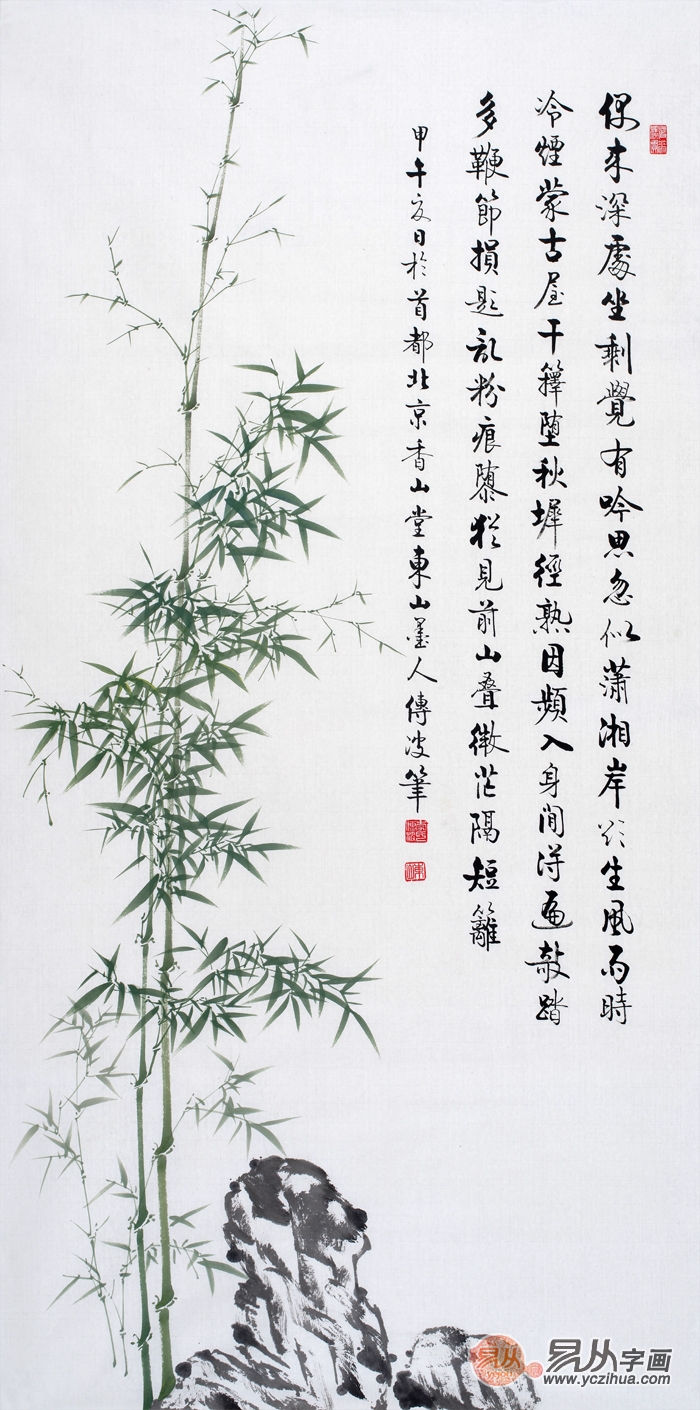 偶来深處坐剩覺有吟思忽似瀟湘岸欲生風雨時
冷煙蒙古屋干籜墮秋墀徑熟因頻入身閒得遍敲踏
多鞭節損題乱粉痕隳猶見前山叠微茫隔短籬
甲午夏日於首都北京香山堂東山墨人傳波筆
易从
易从字画
www.yczihua.com